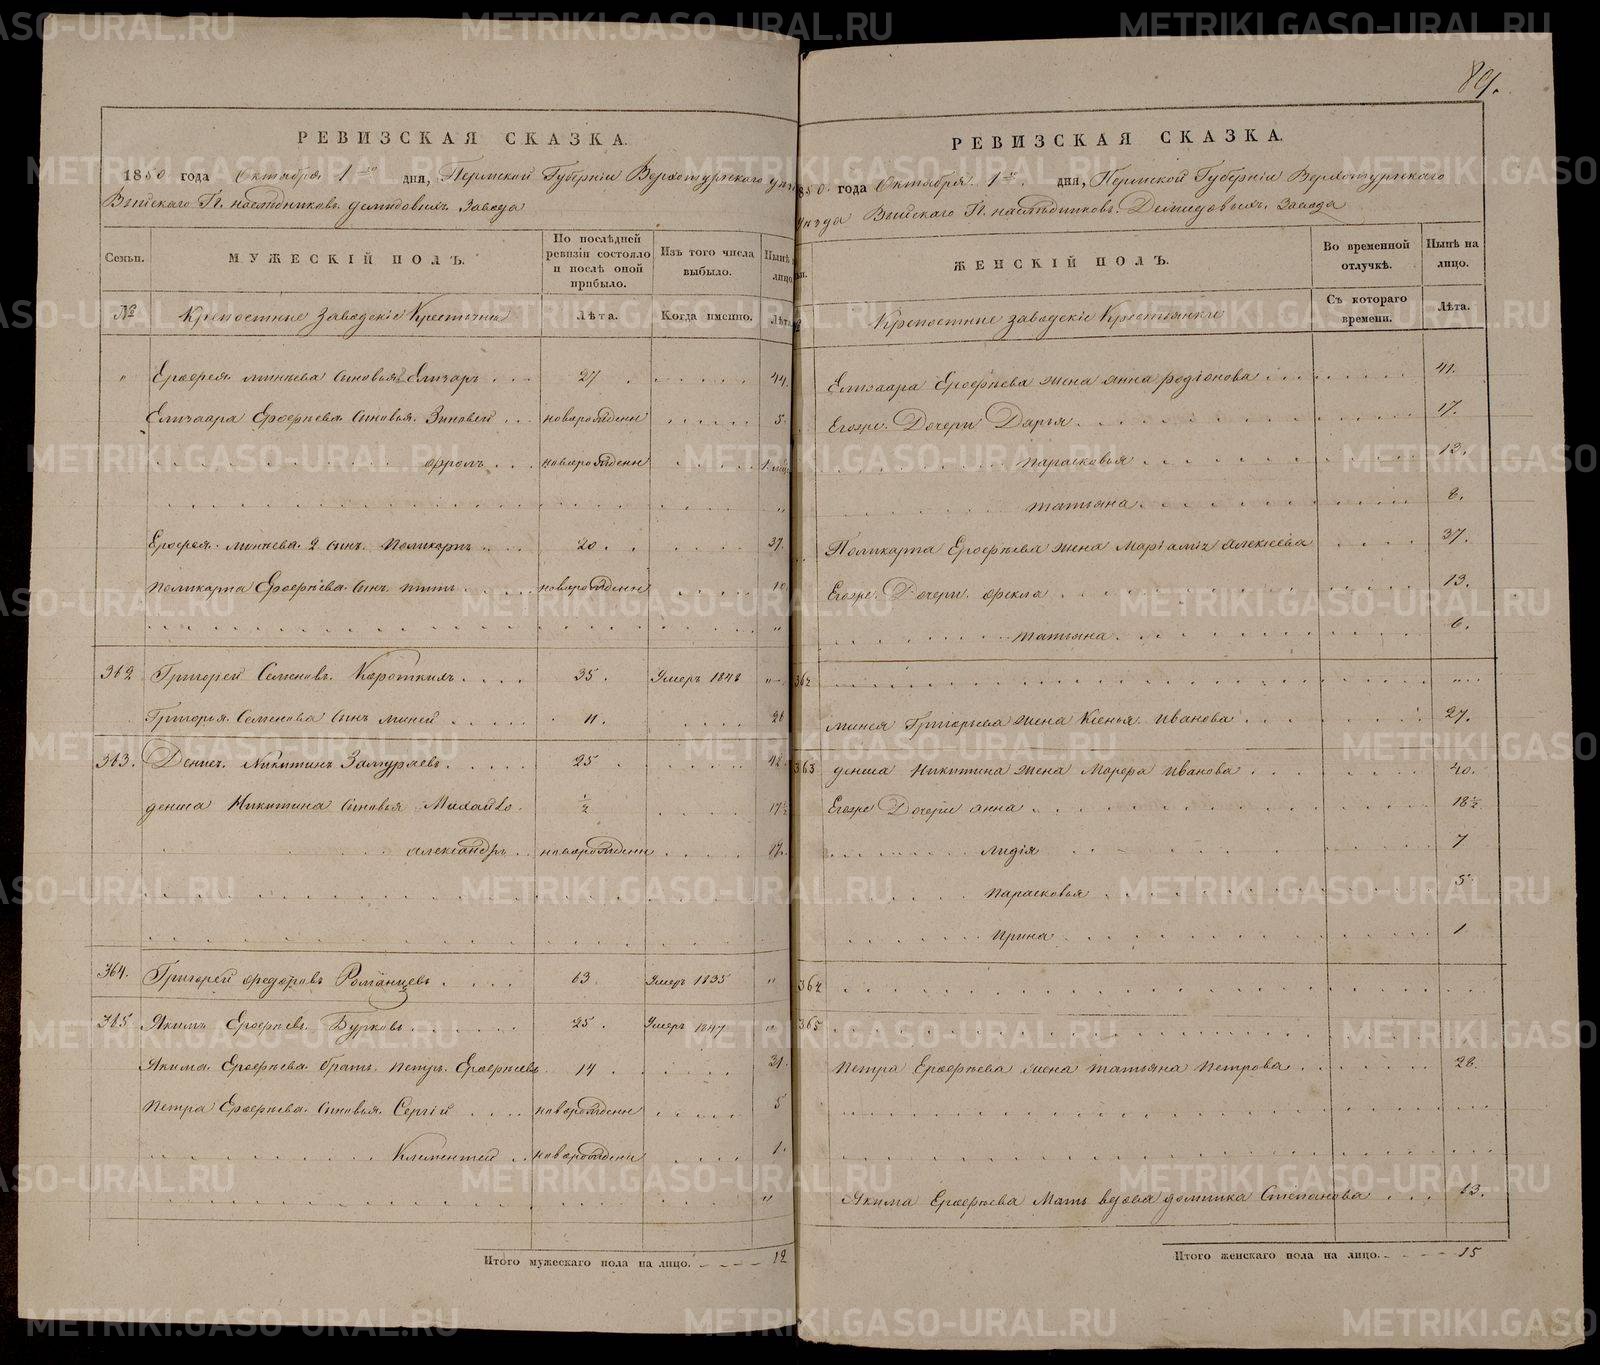 89.
РЕВИЗСКАЯ СКАЗКА.
1850 года Октября 1го дня, Пермской Губерніи Верхотурскаго уѣз
Выйскаго Гг. наслѣдниковъ демидовыхъ Завода
Семьи.
МУЖЕСКІЙ ПОЛЪ.
По послѣдней ревизіи состояло и послѣ оной прибыло.
Изъ того числа выбыло.
Нынѣ на лицо.
№
Крепостные Заводскіе Крестьяне
Лѣта.
Когда именно.
Лѣта
" Ерофея минѣева сыновья Елизаръ . . . 27 . . . . . . 44.
Елизара Ерофѣева сыновья Зиновей . . . новорожденн . . . . . 5.
. . . . . . . фролъ . . . новорожденн . . . . . 1
Ерофея минѣева 2 сынъ Поликарпъ . . . 20 . . . . . . 37.
Поликарпа Ерофѣева сынъ . . . . новорожденн . . . . . 10
362 Григорей Семеновъ Короткихъ . . . . 35 . Умеръ 1848 "
Григорья Семенова сынъ миней . . . . 11. . . . . 28
363. Денисъ Никитинъ Замураевъ . . . . 25 . . . . . . 42.
дениса Никитина сыновья Михайло. ½ . . . . 17½
. . . александръ . . новорожденн . . . . 17.
364. Григорей федоровъ Романцевъ . . . . 63 Умеръ 1835 "
365 Якимъ Ерофѣевъ Бурковъ . . . . . . 25 . Умеръ 1847 "
Якима Ерофѣева братъ петръ Ерофѣевъ 14 . . . . . . 31.
петра Ерофѣева сыновья Сергій . . . . новорожденн . . . . . 5
. . . . . . . Климентей . . новорожденн . . . . 1.
Итого мужескаго пола на лицо. 12
РЕВИЗСКАЯ СКАЗКА.
1850 года Октября 1го дня, Пермской Губерніи Верхотурскаго
уѣзда Выйскаго Гг. наслѣдниковъ Демидовыхъ Завода
ЖЕНСКІЙ ПОЛЪ.
Во временной отлучкѣ.
Нынѣ на лицо.
Крепостные заводскіе Крестьянки
Съ котораго времени.
Лѣта.
Елизаара Ерофѣева жена анна родіонова . . . . . . 41.
Егоже Дочери Дарья . . . . . . 17.
. . . . парасковья . . . . . . 13.
. . . . татьяна . . . . . . 8.
Поликарпа Ерофѣева жена Маріамія алексѣева . . . . 37.
Егоже Дочери фекла . . . . . . 13.
. . . . татьяна . . . . . . 6.
362 . . . . . . "
минея Григорьева жена Ксенья Иванова . . . . . . 27.
363 дениса Никитина жена Марфа Иванова . . . . . . 40.
Егоже Дочери анна . . . . . . 18½
. . . . Лидія . . . . . . 7
. . . . парасковья . . . . . . 5
. . . . ирина . . . . . . 1
364 . . . . . .
365 . . . . . .
петра Ерофѣева жена татьяна петрова . . . . . . 28.
Якима Ерофѣева Мать вдова домника Степанова . . . 63.
Итого женскаго пола на лицо. 15
METRIKI.GASO-URAL.RU